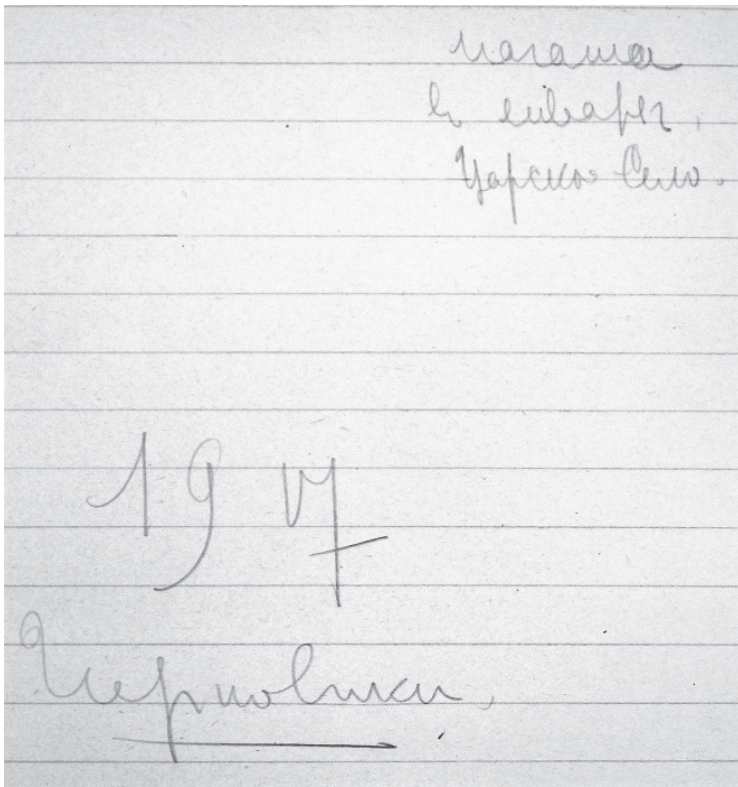 Начата
в январе,
Царское Село.
1917
Черновики.